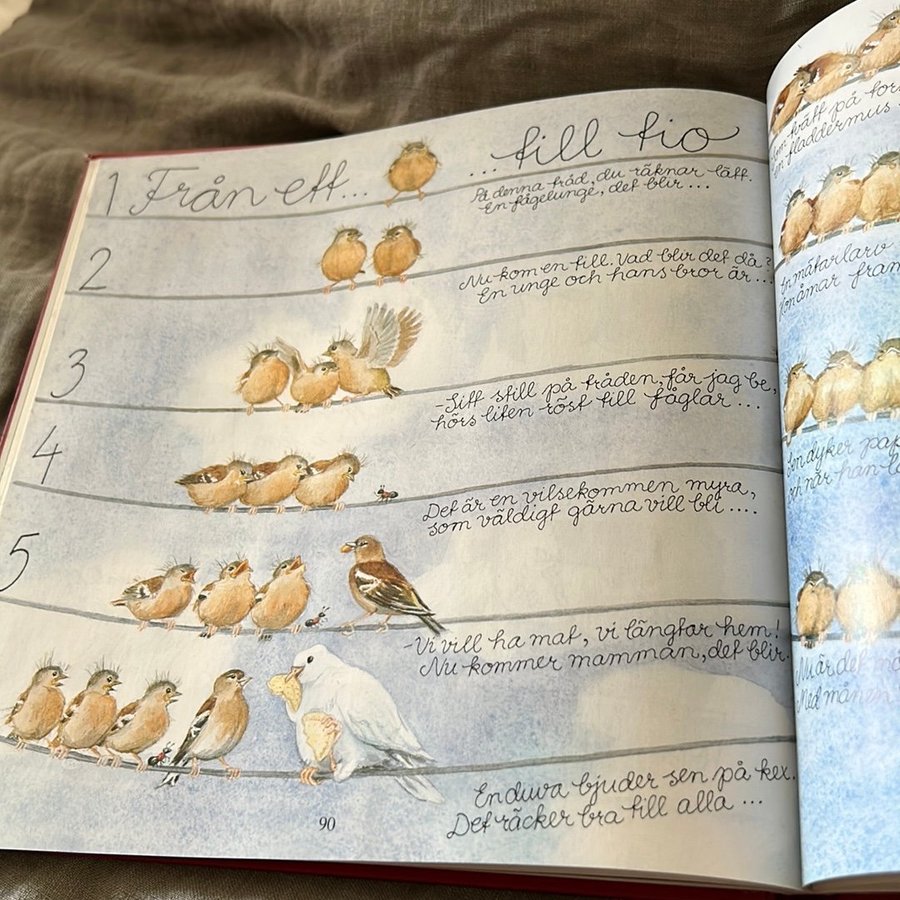 1 Från ett... ...till tio
På denna tråd, du räknar lätt.
En fågelunge, det blir ...
2
Nu kom en till. Vad blir det då?
En unge och hans bror är...
3
-Sitt still på tråden, får jag be,
hörs liten röst till fåglar ...
4
Det är en vilsekommen myra,
som väldigt gärna vill bli ....
5
-Vi vill ha mat, vi längtar hem!
Nu kommer mamman, det blir
En duva bjuder sen på kex.
Det räcker bra till alla ...
90
tvätt på
fladdermus
En mätarlarv
fram
dyker
och när han
Nu är det
Med månen